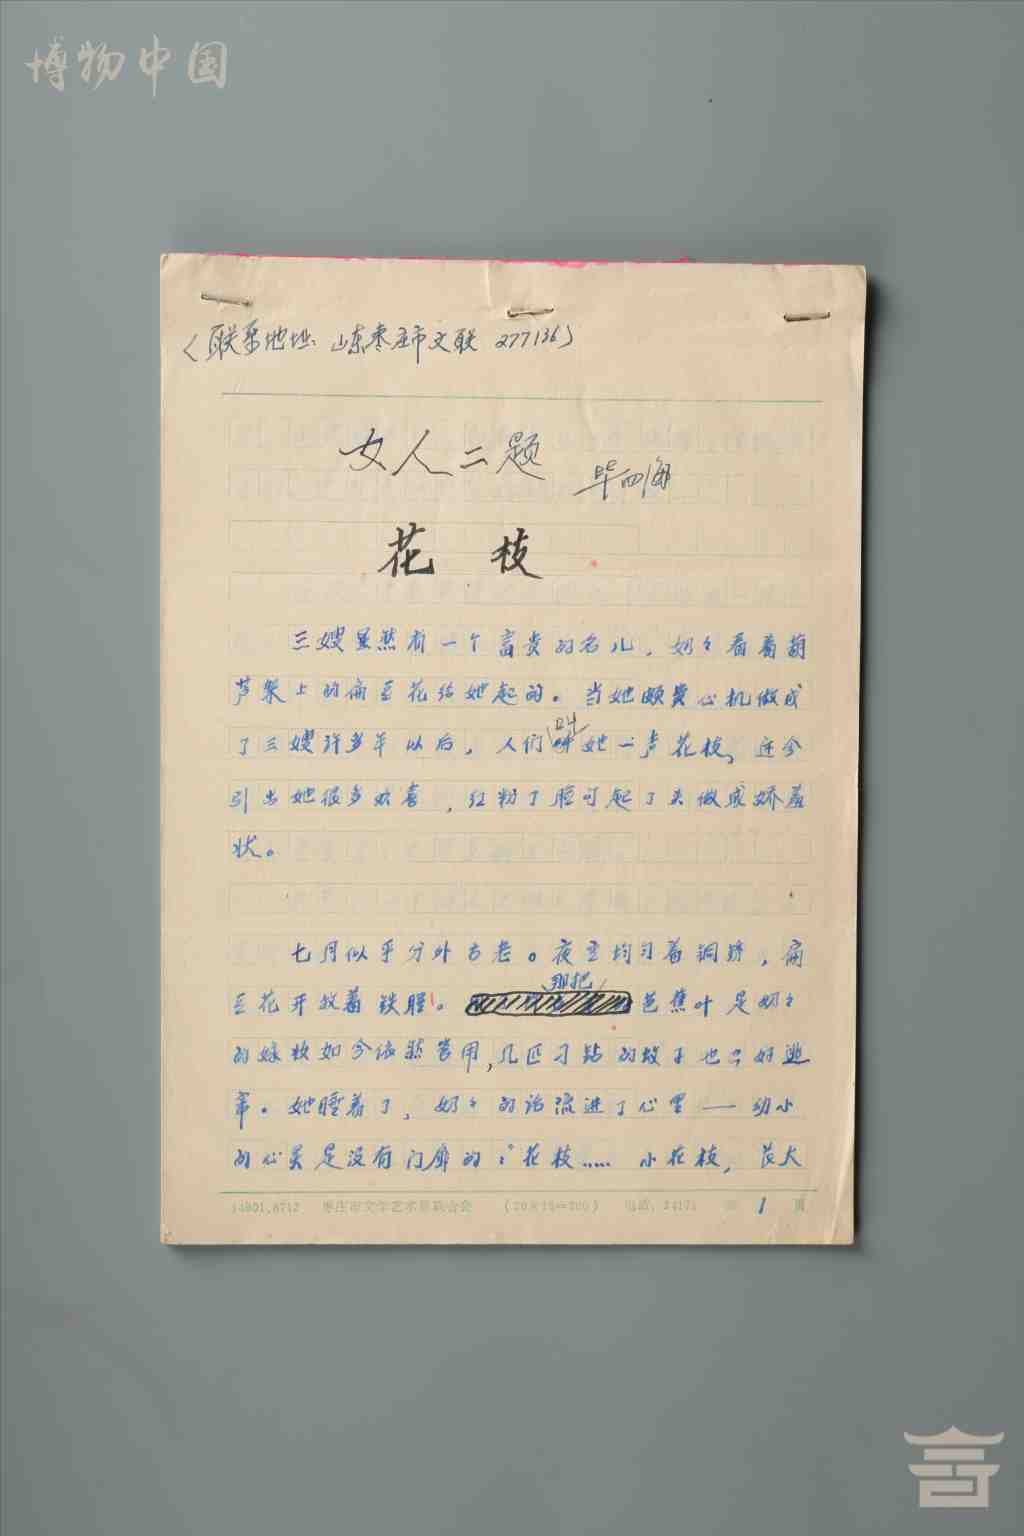 博物中国
（联系地址：山东枣庄市文联 277136）
女人二题
毕四海
花 枝
三嫂虽然有一个富贵的名儿，奶々看着葫
芦架上的扁豆花给她起的。当她颇费心机做成
了三嫂许多年以后，人们叫她一声花枝，还会
引出她很多欢喜，红粉了脸勾起了头做成娇羞
状。
七月似乎分外古老。夜空均匀着铜锈，扁
豆花开放着铁腥。那把芭蕉叶是奶々
的嫁妆如今依然管用，几匹刁钻的蚊子也只好逃
窜。她睡着了，奶々的话流进了心里——幼小
的心灵是没有门扉的：“花枝…… 小花枝，长大
14801.8712 枣庄市文学艺术界联合会 （20×15=300） 电话：2417 第 1 页